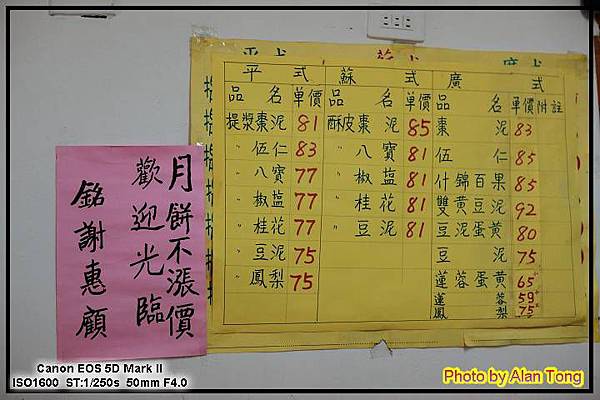 平式 蘇式 廣式
品名 單價 品名 單價 品名 單價 附註
提漿棗泥 81 酥皮棗泥 85 棗泥 83
〃 伍仁 83 〃 八寶 81 伍仁 85
〃 八寶 77 〃 椒盐 81 什錦百果 85
〃 椒盐 77 〃 桂花 81 雙黃豆泥 92
〃 桂花 77 〃 豆泥 81 豆泥蛋黃 80
〃 豆泥 75 豆泥 75
〃 鳳梨 75 蓮蓉蛋黃 65
蓮蓉 59
鳳梨 75
月餅不漲價
歡迎光臨
銘謝惠顧
Canon EOS 5D Mark II
ISO1600 ST:1/250s 50mm F4.0
Photo by Alan Tong